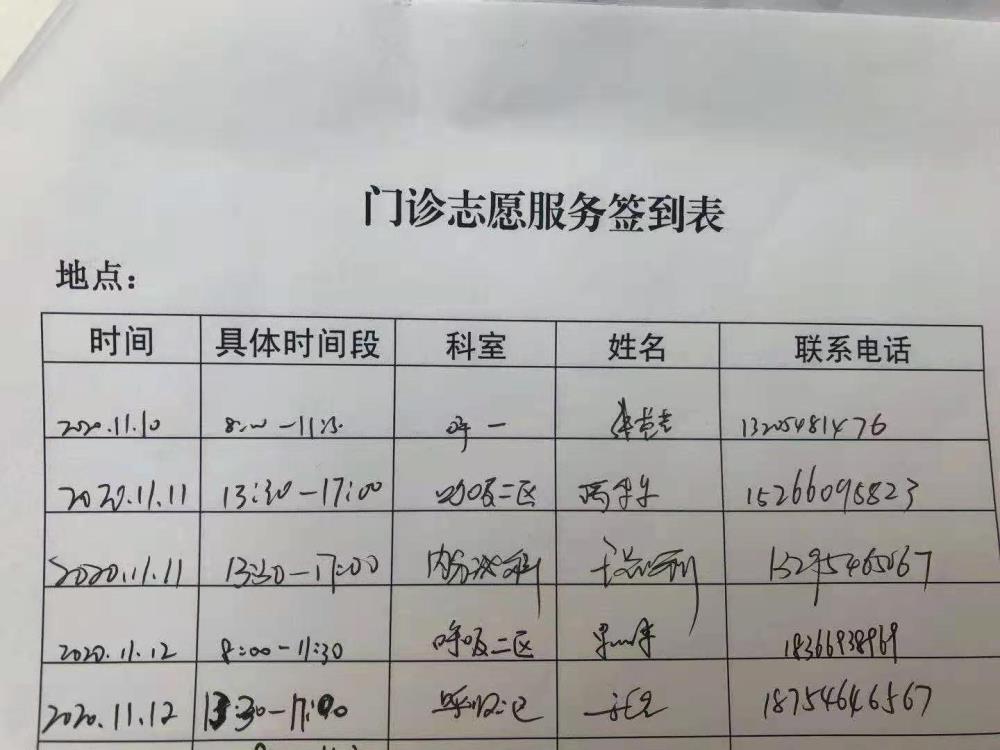 门诊志愿服务签到表
地点：
时间 具体时间段 科室 姓名 联系电话
2020.11.10 8:00-11:30 呼一 13205481476
2020.11.11 13:30-17:00 呼吸二区 15266095823
2020.11.11 13:30-17:00 内分泌科 13295465067
2020.11.12 8:00-11:30 呼吸二区 18366938969
2020.11.12 13:30-17:00 18754646567